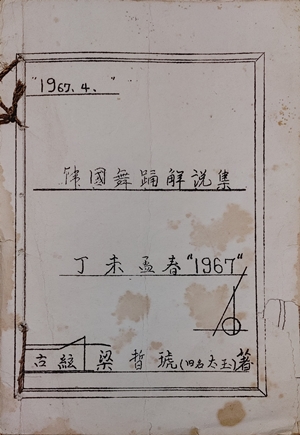 "1967. 4. "
韓國舞踊解説集
丁未孟春"1967"
古絃 梁哲琥(旧名太玉)著